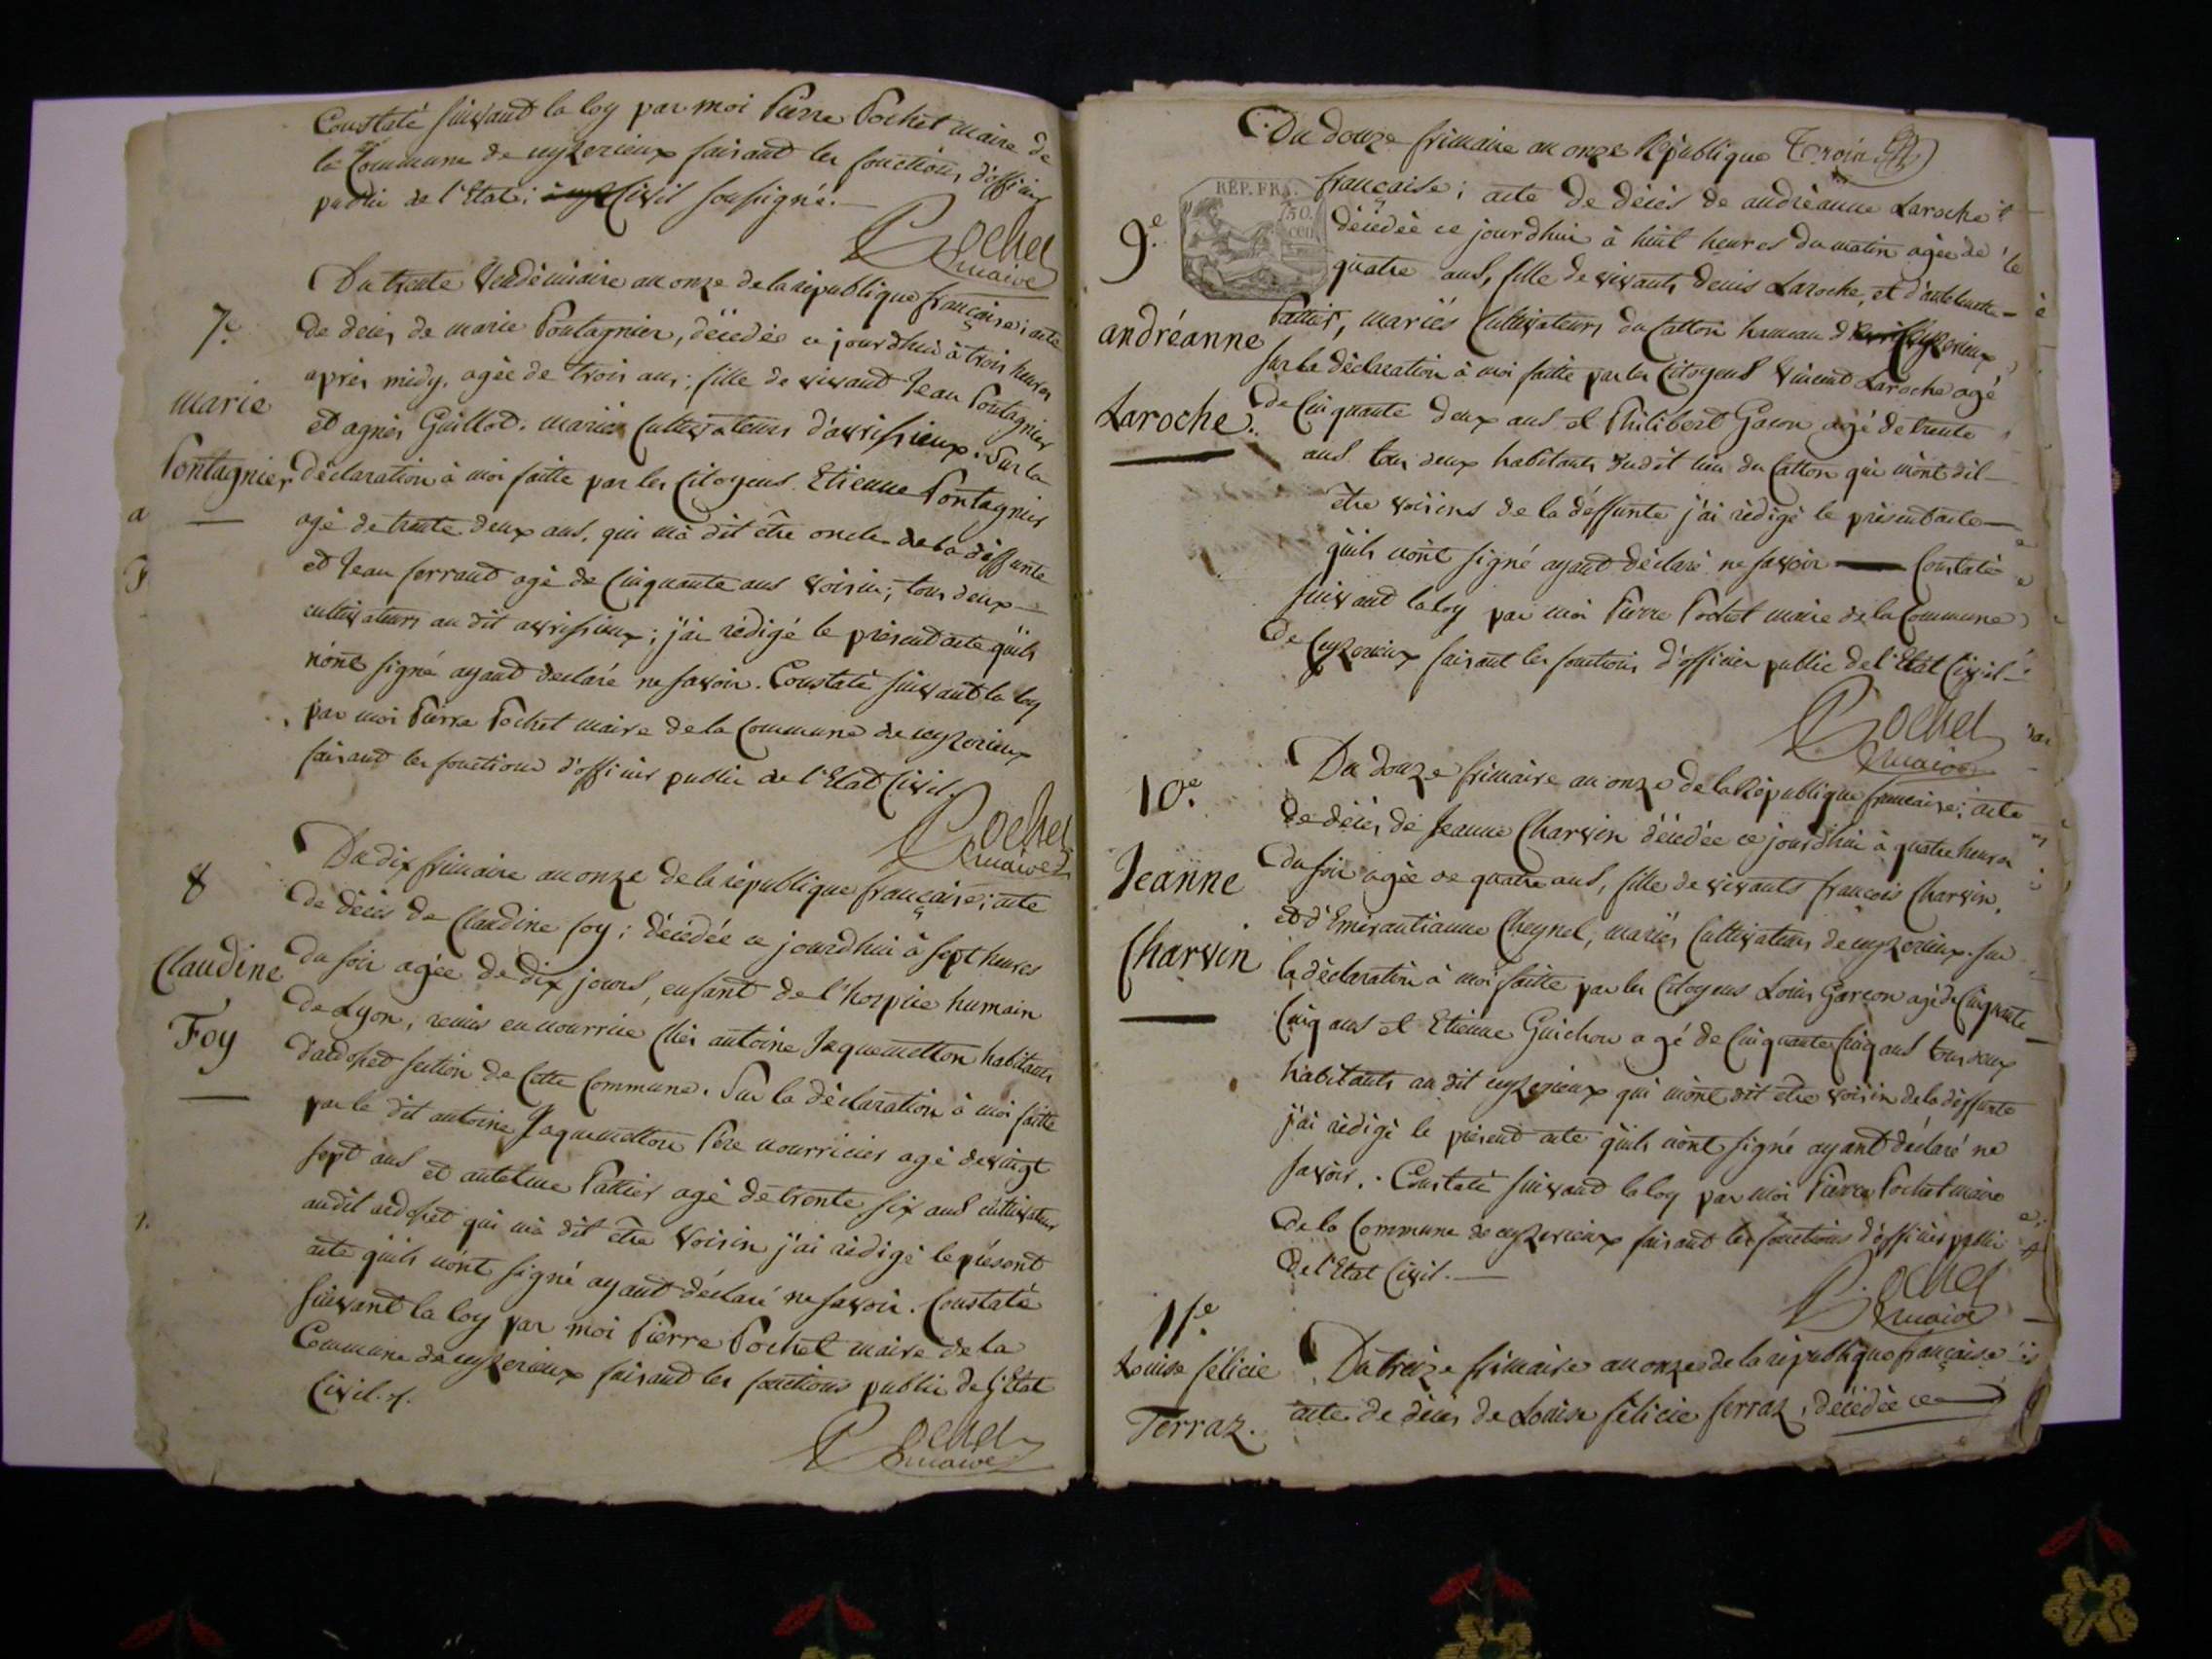 Constaté suivant la loy par moi Pierre Pochet maire de
la Commune de cyzerieux faisant les fonctions d'officier
public de l'Etat Civil soussigné.
Pochet
maire
7e
marie
Pontagnier
Du trente Vendémiaire an onze de la république française; acte
de decès de marie Pontagnier, décédée ce jourdhui à trois heures
après midy. agée de trois ans; fille de vivant Jean Pontagnier
et agnès Guillot. mariés Cultivateurs d'avrissieux. Sur la
déclaration à moi faitte par les Citoyens Etienne Pontagnier
agé de trente deux ans, qui m'a dit être oncle de la déffunte
et Jean ferrand agé de Cinquante ans Voisin; tous deux
cultivateurs au dit avrissieux; j'ai rédigé le présent acte qu'ils
n'ont signé ayant declaré ne savoir. Constaté suivant la loy
par moi Pierre Pochet maire de la Commune de cyzerieux
faisant les fonctions d'officier public de l'Etat Civil.
Pochet
maire
8
Claudine
Foy
Du dix frimaire an onze de la république française; acte
de décès de Claudine foy; décédée ce jourdhui à sept heures
du soir agée de dix jours, enfant de l'hospice humain
de Lyon, remis en nourrice Chés antoine Jaquemetton habitant
d'ardosset section de Cette Commune. Sur la déclaration à moi faitte
par le dit antoine Jaquemetton Père nourricier agé de vingt
sept ans et antelme Pattier agé de trente six ans cultivateur
audit ardosset qui m'a dit être Voisin j'ai rédigé le présent
acte qu'ils n'ont signé ayant déclaré ne savoir. Constaté
suivant la loy par moi Pierre Pochet maire de la
Commune de cyzerieux faisant les fonctions public de l'Etat
Civil.
Pochet
maire
Du douze frimaire an onze République Trois
REP. FRA.
française; acte de décès de andréanne Laroche
9e
décédée ce jourdhui à huit heures du matin agée de
quatre ans, fille de vivants denis Laroche, et d'antelmette
andréanne
Laroche.
Pattier, mariés Cultivateurs du Catton hameau de Cyzerieux
sur la déclaration à moi faitte par les Citoyens Vincent Laroche agé
de Cinquante deux ans et Philibert Gacon agé de trente
ans tous deux habitants dudit lieu du Catton qui m'ont dit
être voisins de la déffunte j'ai rédigé le présent acte
quils n'ont signé ayant déclaré ne savoir Constaté
suivant la loy par moi Pierre Pochet maire de la Commune
de Cyzerieux faisant les fonctions d'officier public de l'Etat Civil
Pochet
maire
10e
Jeanne
Charvin
Du douze frimaire an onze de la République française; acte
de décès de Jeanne Charvin décédée ce jourdhui à quatre heures
du soir agée de quatre ans, fille de vivants françois Charvin,
et d'Emerantianne Cheynel, mariés Cultivateurs de cyzerieux. sur
la déclaration à moi faitte par les Citoyens Louis Garçon agé de Cinquante
Cinq ans et Etienne Guichon agé de Cinquante Cinq ans tous deux
habitants au dit cyzerieux qui m'ont dit être voisin de la déffunte
j'ai rédigé le présent acte qu'ils n'ont signé ayant déclaré ne
savoir. Constaté suivant la loy par moi Pierre Pochet maire
de la Commune de cyzerieux faisant les fonctions d'officier public
de l'Etat Civil.
Pochet
maire
11e
Louise félicie
Ferraz.
Du treize frimaire an onze de la république française
acte de décès de Louise félicie ferraz, décédée ce